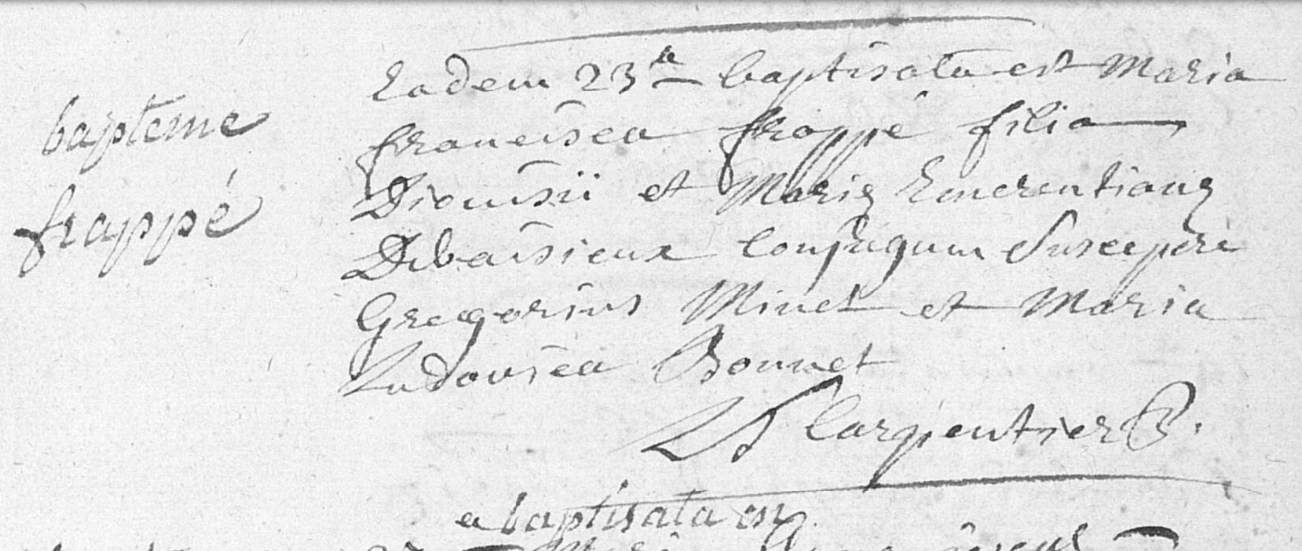 bapteme
frappé
Eadem 23ª baptisata est Maria
francisca frappé filia
Dionisii et Mariæ Emerentianæ
Debaisieux Conjugum Suscepere
Gregorius Minet et Maria
Ludovica Bonnet
Carpentier
a baptisata est